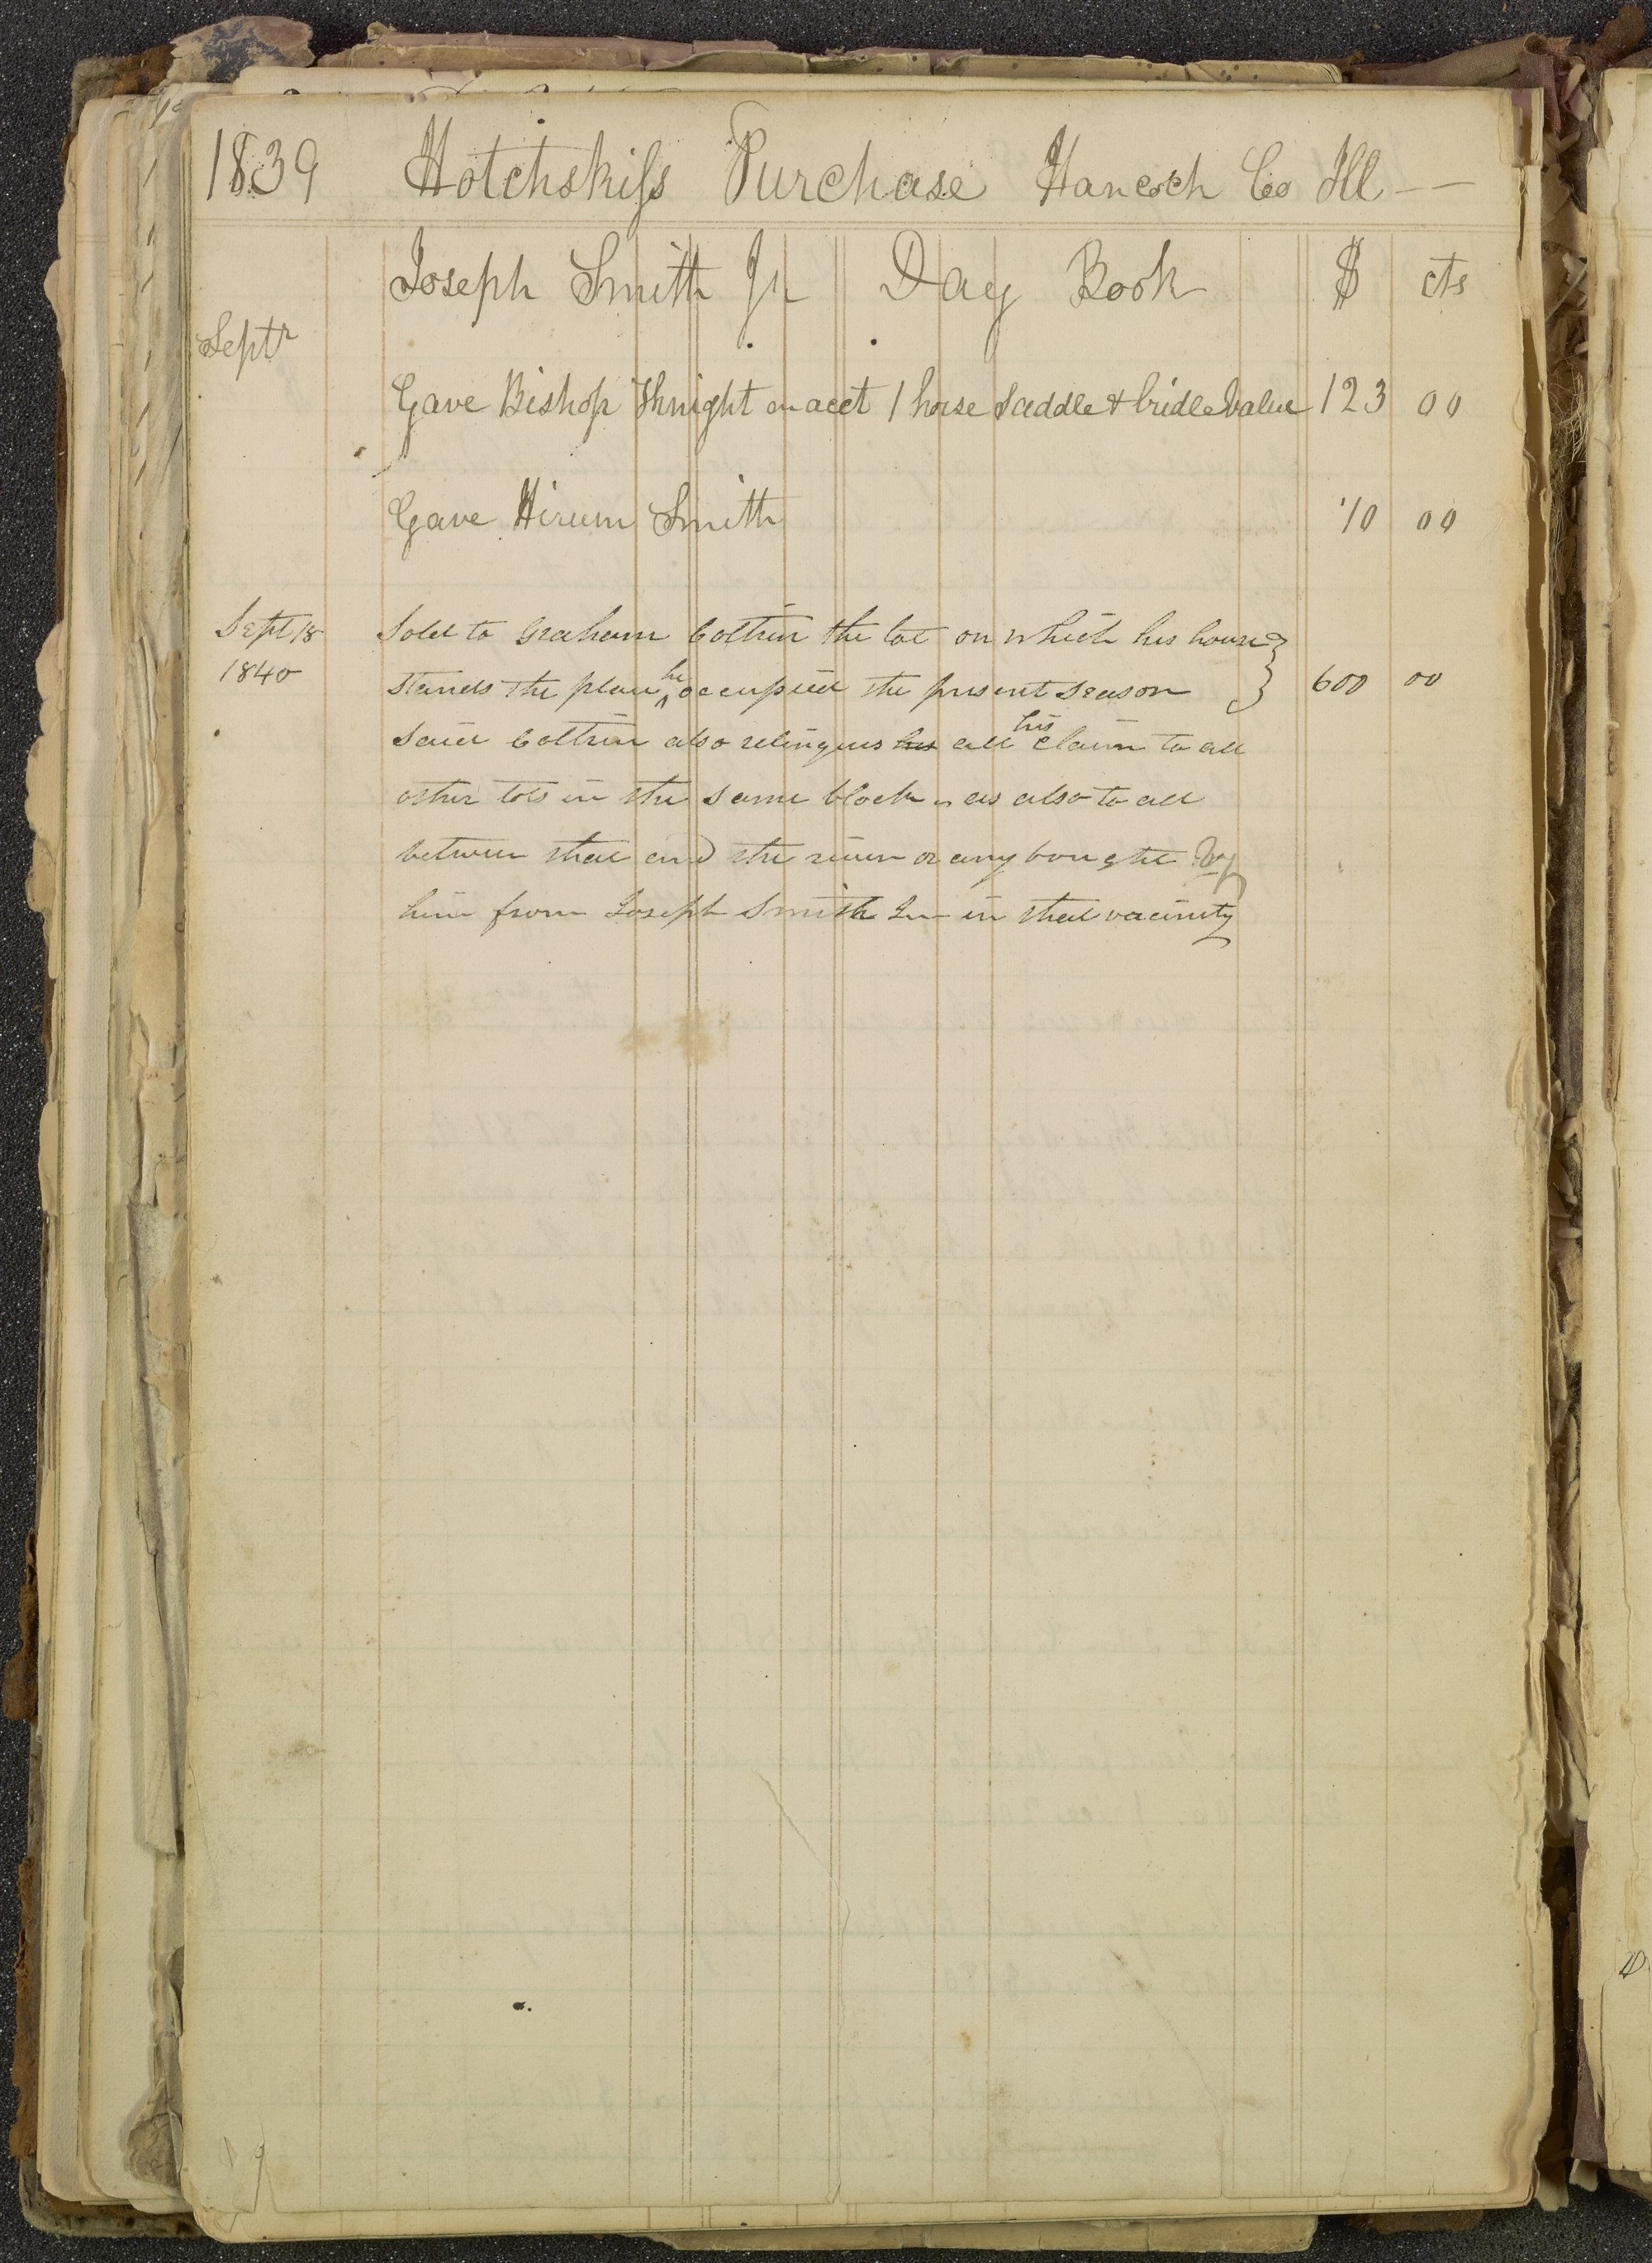 1839 Hotchskiss Purchase Hancock Co Ill —
Joseph Smith Jr Day Book $ cts
Septr
Gave Bishop Khnight on acct 1 horse Saddle & bridle Value 123 00
Gave Hirum Smith 10 00
Sept 18 Sold to Graham Coltrin the lot on which his house
1840 stands the place he occupied the present season 600 00
said Coltrin also relinques his all his claim to all
other lots in the same block as also to all
between that and the river or any bought by
him from Joseph Smith Jn in that vacinity